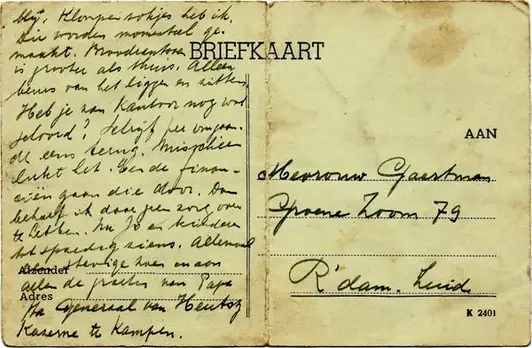 blij. Klompensokjes heb ik.
Die worden momenteel ge-
maakt. Broodrantsoen
is grooter als thuis. Alleen
beurs van het liggen en zitten.
Heb je van Kantoor nog wat
gehoord? Schrijf per omgaan-
de eens terug. Misschien
lukt het. En de finan-
ciën gaan die door. Dan
behoef ik daar geen zorg over
te hebben. Nu Jo en kinderen
tot spoedig ziens. Allemaal
een stevige zoen en aan
allen de groeten van Papa
p/a Generaal van Heutsz
Kazerne te Kampen.
Afzender
Adres
BRIEFKAART
AAN
Mevrouw Gaartman
Groene Zoom 79
R'dam. Zuid
K 2401